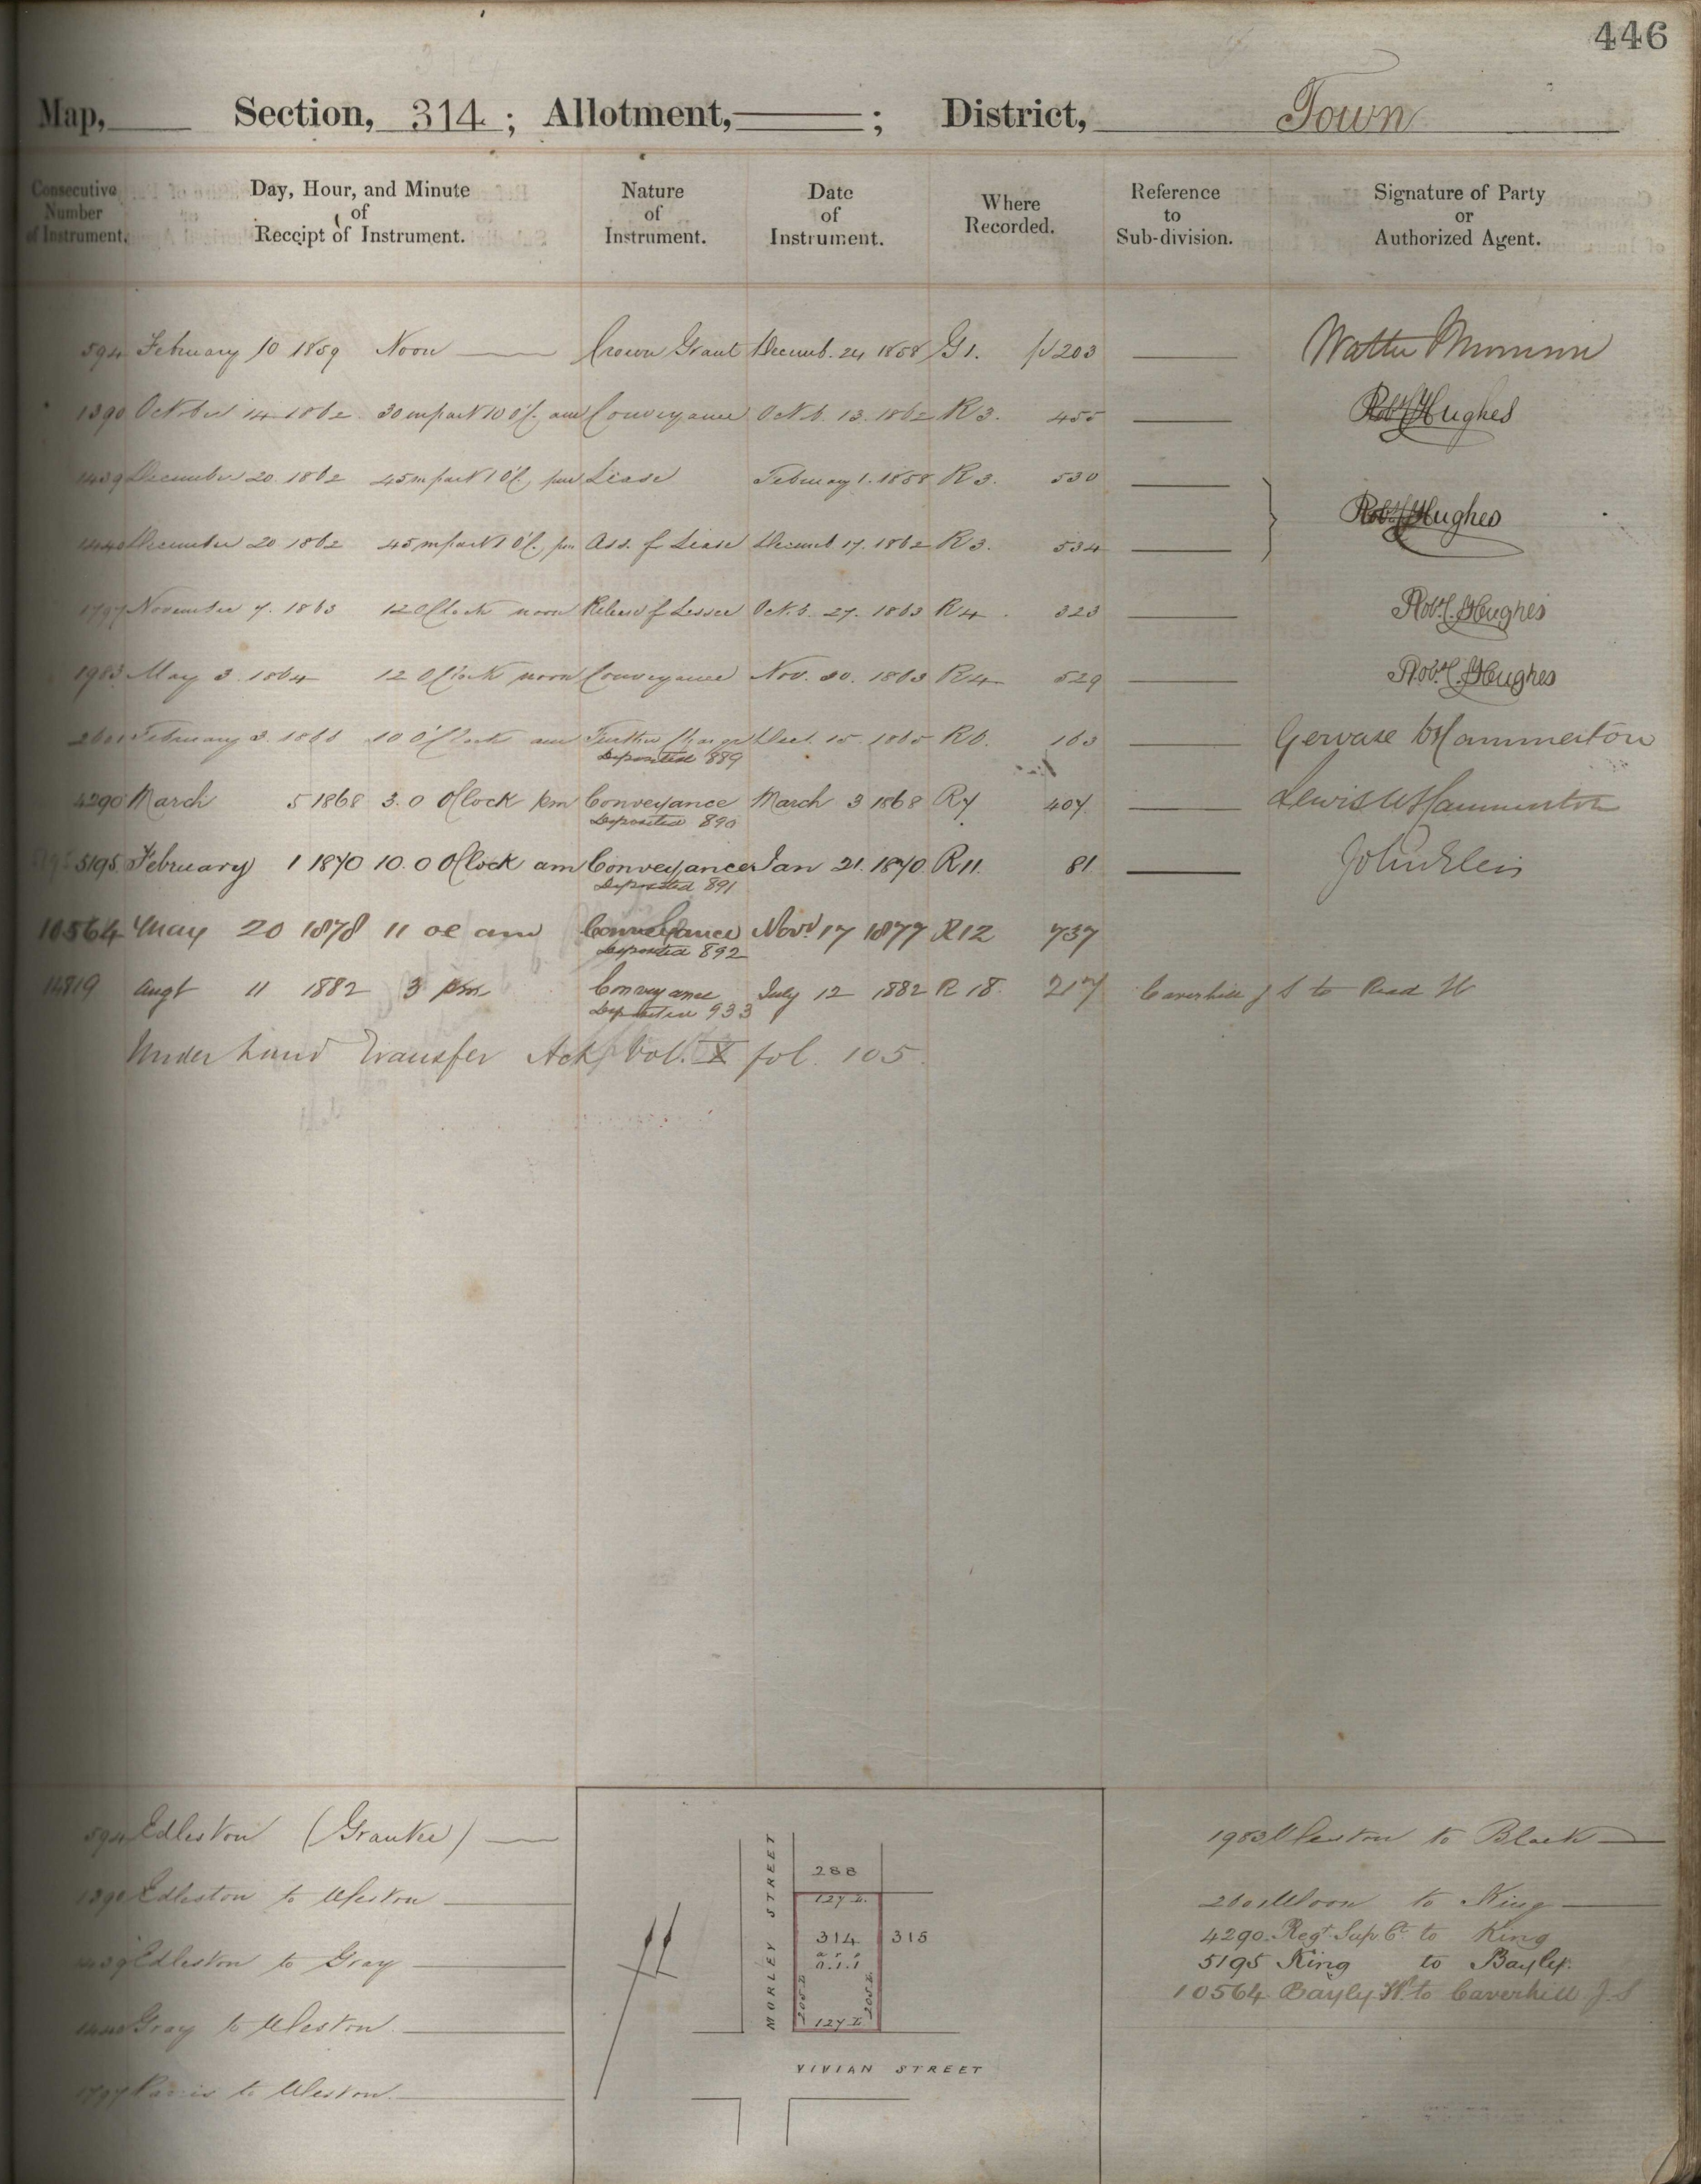 446
Map, Section, 314 ; Allotment, ; District, Town
Consecutive Number of Instrument.
Day, Hour, and Minute of Receipt of Instrument.
Nature of Instrument.
Date of Instrument.
Where Recorded.
Reference to Sub-division.
Signature of Party or Authorized Agent.
594 February 10 1859 Noon Crown Grant Decemb. 24 1858 G 1. p 203 Walter
1390 October 14 1862 30 m past 10 o'c. am Conveyance Octb. 13. 1862 R 3. 455 Robt. Hughes
1439 December 20. 1862 45 m past 1 o'c. pm Lease February 1. 1858 R 3. 530
1440 December 20 1862 45 m past 1 o'c. pm Ass. of Lease Decemb 17. 1862 R 3. 534 Robt. Hughes
1797 November 7. 1863 12 o'Clock noon Release of Lessee Octb. 27. 1863 R 4. 323 Robt. Hughes
1983 May 3. 1864 12 o'Clock noon Conveyance Nov. 30. 1863 R 4 529 Robt. Hughes
2601 February 3. 1866 10 o'Clock am Further Charge Dec. 15. 1865 R 6. 163 Gervase Hammerton
Deposited 889
4290 March 5 1868 3. 0 oClock pm Conveyance March 3 1868 R 7 407 Lewis Hammerton
Deposited 890
5195 February 1 1870 10. 0 oClock am Conveyance Jan 21. 1870. R 11. 81
Deposited 891
10564 May 20 1878 11 oc am Conveyance Novr. 17 1877 R 12 737
Deposited 892
14819 Augt 11 1882 3 pm Conveyance July 12 1882 R 18. 217 Caverhill J S to Read W
Deposited 933
Under Land Transfer Act, Vol. X fol. 105.
594 Edleston (Grantee)
1390 Edleston to Weston
1439 Edleston to Gray
1440 Gray to Weston.
1797 to Weston.
MORLEY STREET
288
127 L.
314
315
a. r. p.
0. 1. 1
205 L
205 L
127 L
VIVIAN STREET
1983 Weston to Black
2601 Moon to King
4290. Regr. Sup Ct. to King
5195 King to Bayly.
10564 Bayly W. to Caverhill J. S